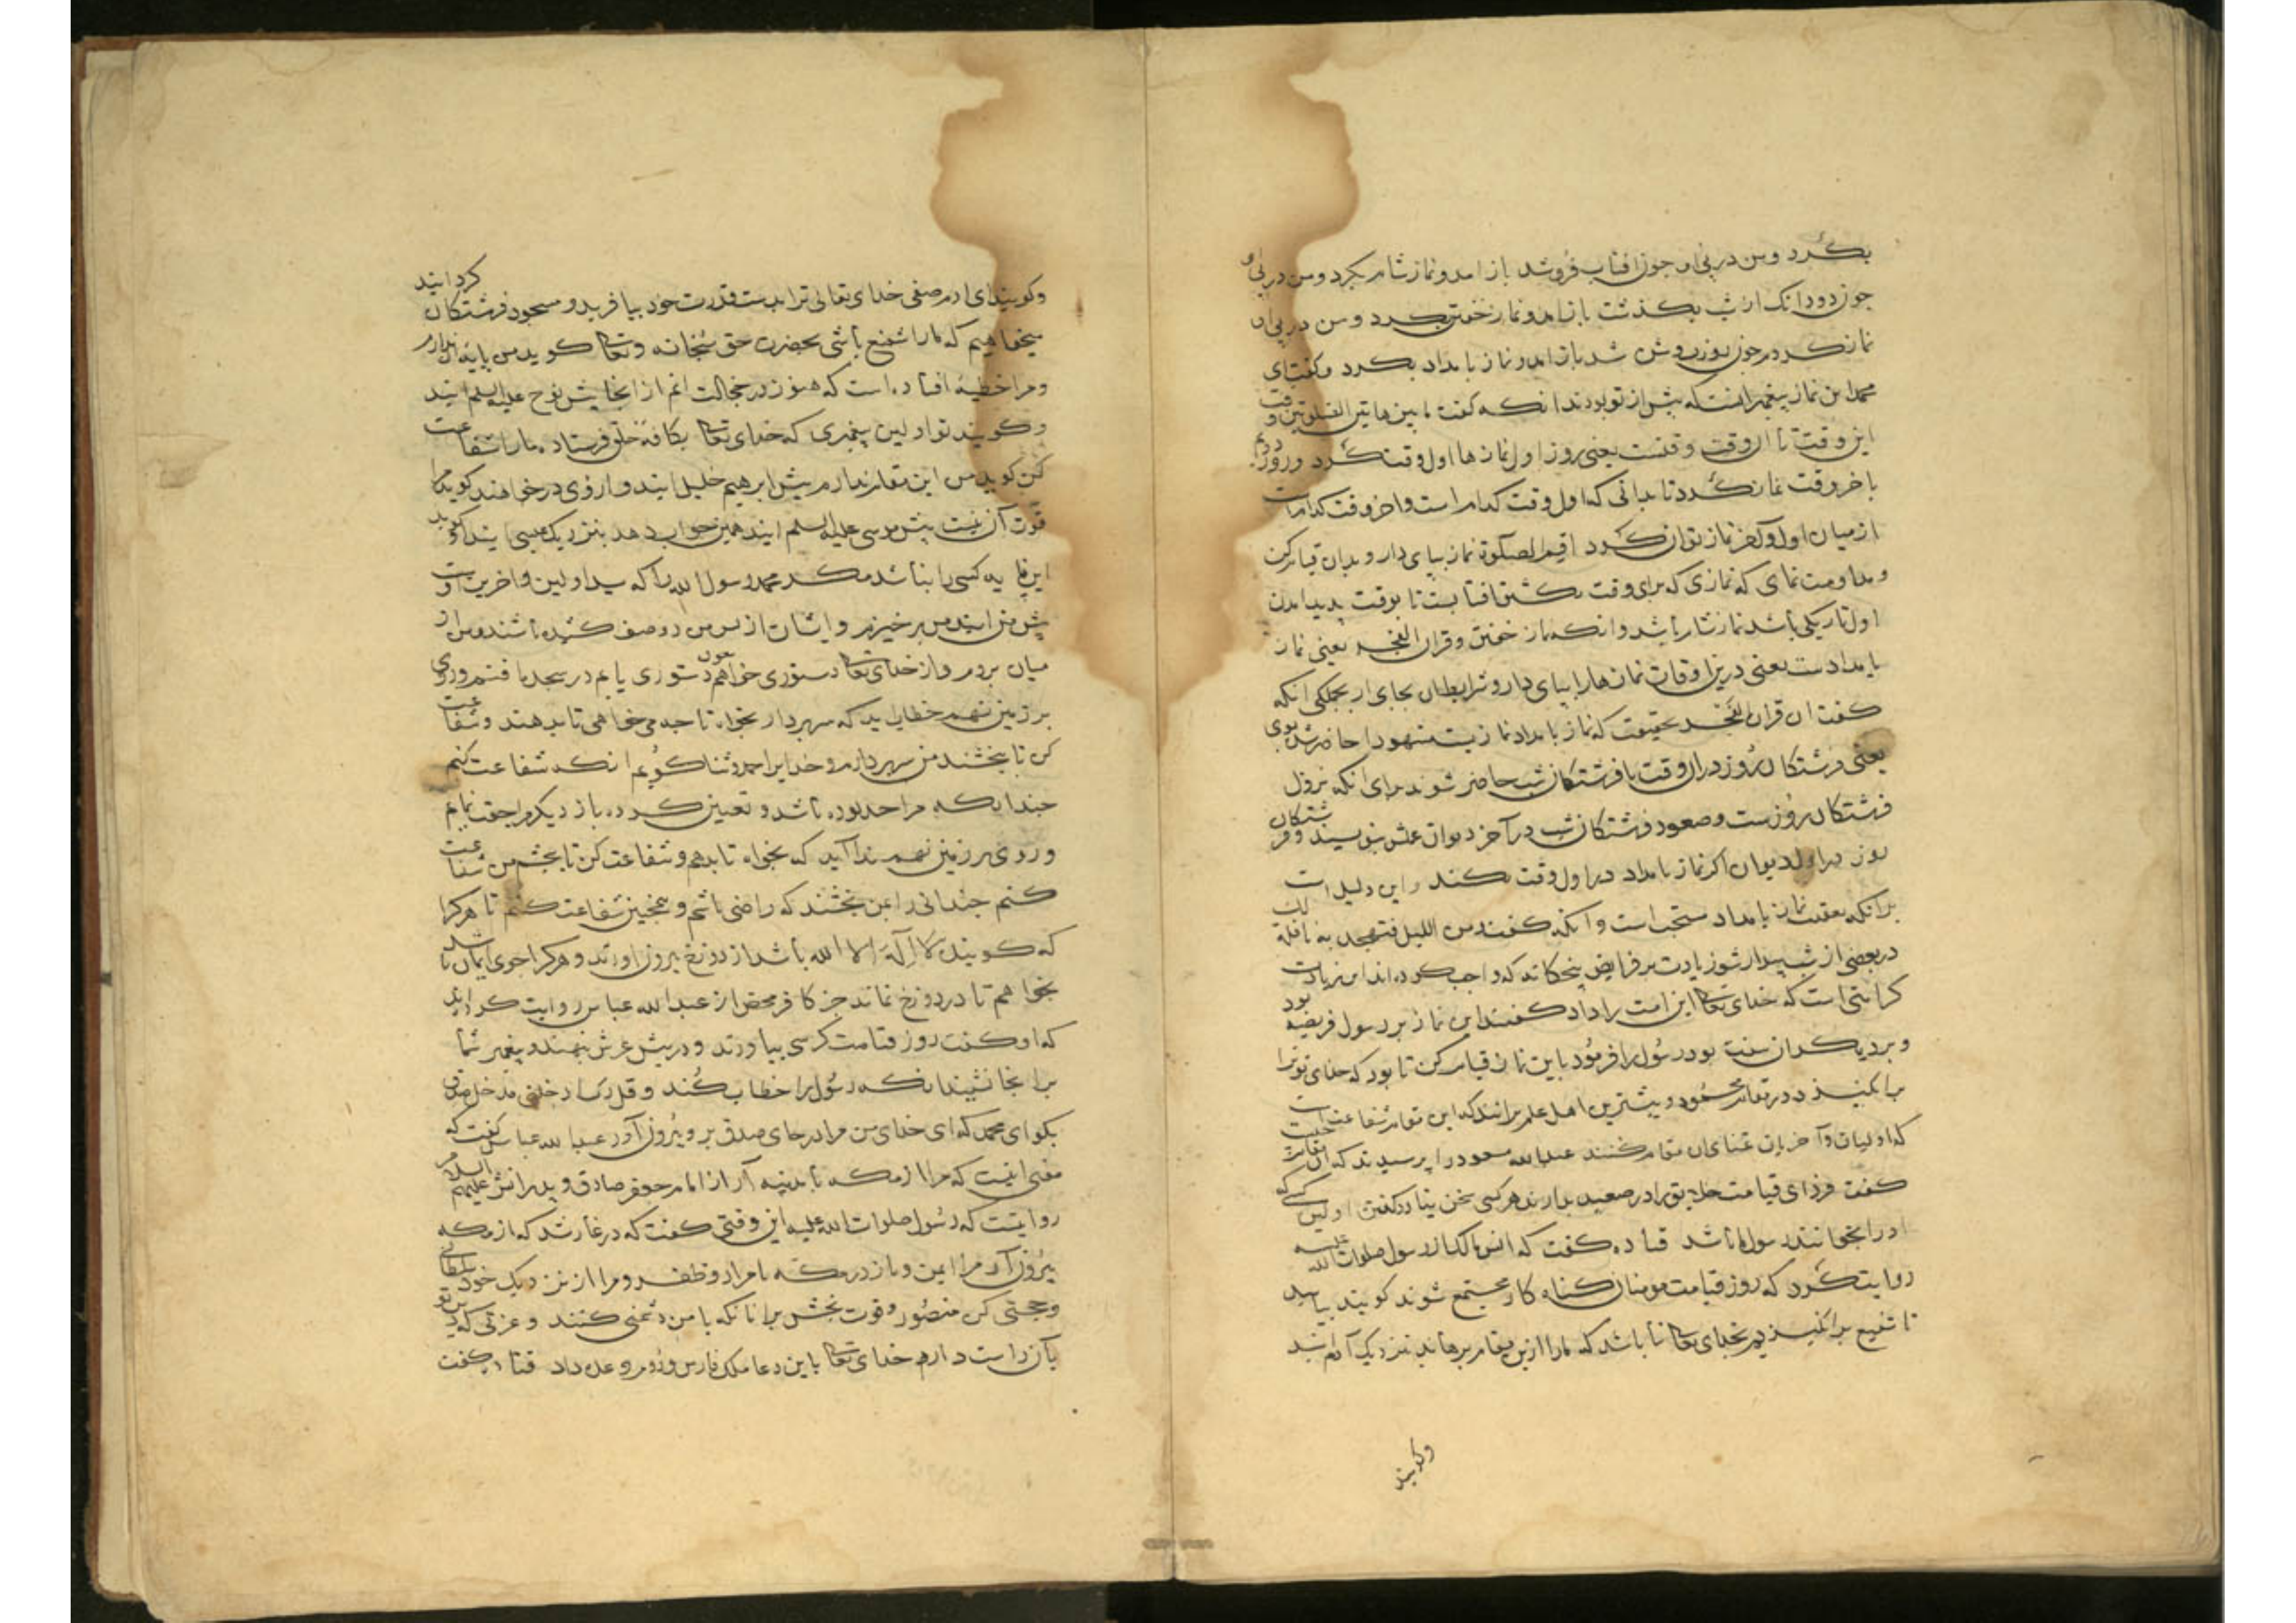 بکرد ومن در پی او جون افتاب فروشد باز امد ونماز شام بکرد ومن در پی او
جون دودانک از شب بکذشت باز امد ونماز خفتن بکرد ومن در پی او
نماز کردم جون روز روشن شد باز امد ونماز بامداد بکرد وکفت ای
محمد این نماز پیغمبرانست که پیش از تو بودند انکه کفت ما بین هاتین الصلوتین وقت
این وقت تا ان وقت وقتست یعنی روز اول نمازها اول وقت کرد وروز دویم
باخر وقت نماز کرد تا بدانی که اول وقت کدام است واخر وقت کدامست
از میان اول واخر نماز توان کرد اقم الصلوة نماز بپای دار وبدان قیام کن
ومداومت نمای که نمازی که برای وقت بکشتن افتابست تا بوقت پدید امدن
اول تاریکی باشد نماز شام باشد وانکه نماز خفتن وقران الفجر یعنی نماز
بامدادست یعنی درین اوقات نمازها را بپای دار وشرایط ان بجای ار بجملکی انکه
کفت ان قران الفجر بحقیقت که نماز بامداد نمازیست مشهود احاضر شد بوی
یعنی فرشتکان روز در ان وقت با فرشتکان شب حاضر شوند برای انکه نزول
فرشتکان روزست وصعود فرشتکان شب در آخر دیوان عملش بنویسند وفرشتکان
روز در اول دیوان اکر نماز بامداد در اول وقت بکند واین دلیل است
برانکه تعقیب نماز بامداد مستحب است وانکه کفت ومن اللیل فتهجد به نافلة لک
در بعضی از شب بیدار شو زیادت بر فرایض پنجکانه که واجب کرده اند این زیادت
کرامتی است که خدای تعالی این امت را داد کفتند این نماز بر رسول فریضه بود
وبر دیکران سنت بود رسول را فرمود باین نماز قیام کن تا بود که خدای تو ترا
برانکیزد در مقام محمود وبیشترین اهل علم برانند که این مقام شفاعت است
که اولیان وآخریان تمنای ان مقام کنند عبدالله مسعود را پرسیدند که ان مقام چیست
کفت فردای قیامت خلایق را در صعید بدارند هر کسی سخن نیارد کفتن اولین کسی که
او را بخوانند رسول ما باشد قتاده کفت که انس مالک از رسول صلوات الله علیه
روایت کرد که روز قیامت مومنان کناه کار مجتمع شوند کویند بیایید
تا شفیع برانکیزیم بخدای تعالی تا باشد که ما را ازین مقام برهاند بنزدیک آدم شوند
وکویند
وکویند ای ادم صفی خدای تعالی ترا بدست قدرت خود بیافرید ومسجود فرشتکان کردانید
میخواهیم که مارا شفیع باشی بحضرت حق سبحانه وتعالی کوید من پایه ان ندارم
ومرا خطیه افتاده است که هنوز در خجالت انم از انجا پیش نوح علیه السلم ایند
وکویند تو اولین پیغمبری که خدای تعالی بکافه خلق فرستاده مارا شفاعت
کن کوید من این مقام ندارم پیش ابرهیم خلیل ایند واز وی درخواهند کوید مرا
قوت آن نیست پیش موسی علیه السلم ایند همین جواب دهد بنزدیک عیسی ایند کوید
این پایه کسی را نباشد مکر محمد رسول الله را که سید اولین واخرین اوست
پیش من ایند من برخیزم وایشان از پس من دو صف کشیده باشند ومن از
میان بروم واز خدای تعالی دستوری خواهم چون دستوری یابم در سجده افتم وروی
بر زمین نهم خطاب اید که سر بردار بخواه تا جه می خواهی تا بدهند وشفاعت
کن تا ببخشند من سر بردارم وخدایرا حمد وثنا کویم انکه شفاعت کنم
جندانکه مرا حد بوده باشد وتعیین کرده باز دیکر مراجعت نمایم
وروی بر زمین نهم ندا آید که بخواه تا بدهم وشفاعت کن تا ببخشم من شفاعت
کنم جندانی را بمن بخشند که راضی باشم وهمجنین شفاعت کنم تا هر کرا
که کوینده لا اله الا الله باشد از دوزخ بیرون اورند وهر کرا جوی ایمان باشد
بخواهم تا در دوزخ نماند جز کافر محض از عبدالله عباس روایت کرده اند
که او کفت روز قیامت کرسی بیاورند ودر پیش عرش بنهند وپیغمبر شما
بر انجا نشیند انکه رسول را خطاب کند وقل رب ادخلنی مدخل صدق
بکو ای محمد که ای خدای من مرا در جای صدق بر وبیرون آور عبدالله عباس کفت که
معنی اینست که مرا از مکه تا بمدینه آر از امام جعفر صادق وپدرانش علیهم السلام
روایتست که رسول صلوات الله علیه این وقتی کفت که در غار شد که از مکه
بیرون آر مرا ایمن وباز در مکه با مراد وظفر ومرا از نزدیک خود سلطانی
وحجتی کن منصور وقوت بخش برانانکه با من دشمنی کنند وعزتی که دین تو
بآن راست دارم خدای تعالی باین دعا ملک فارس وروم وعده داد قتاده کفت